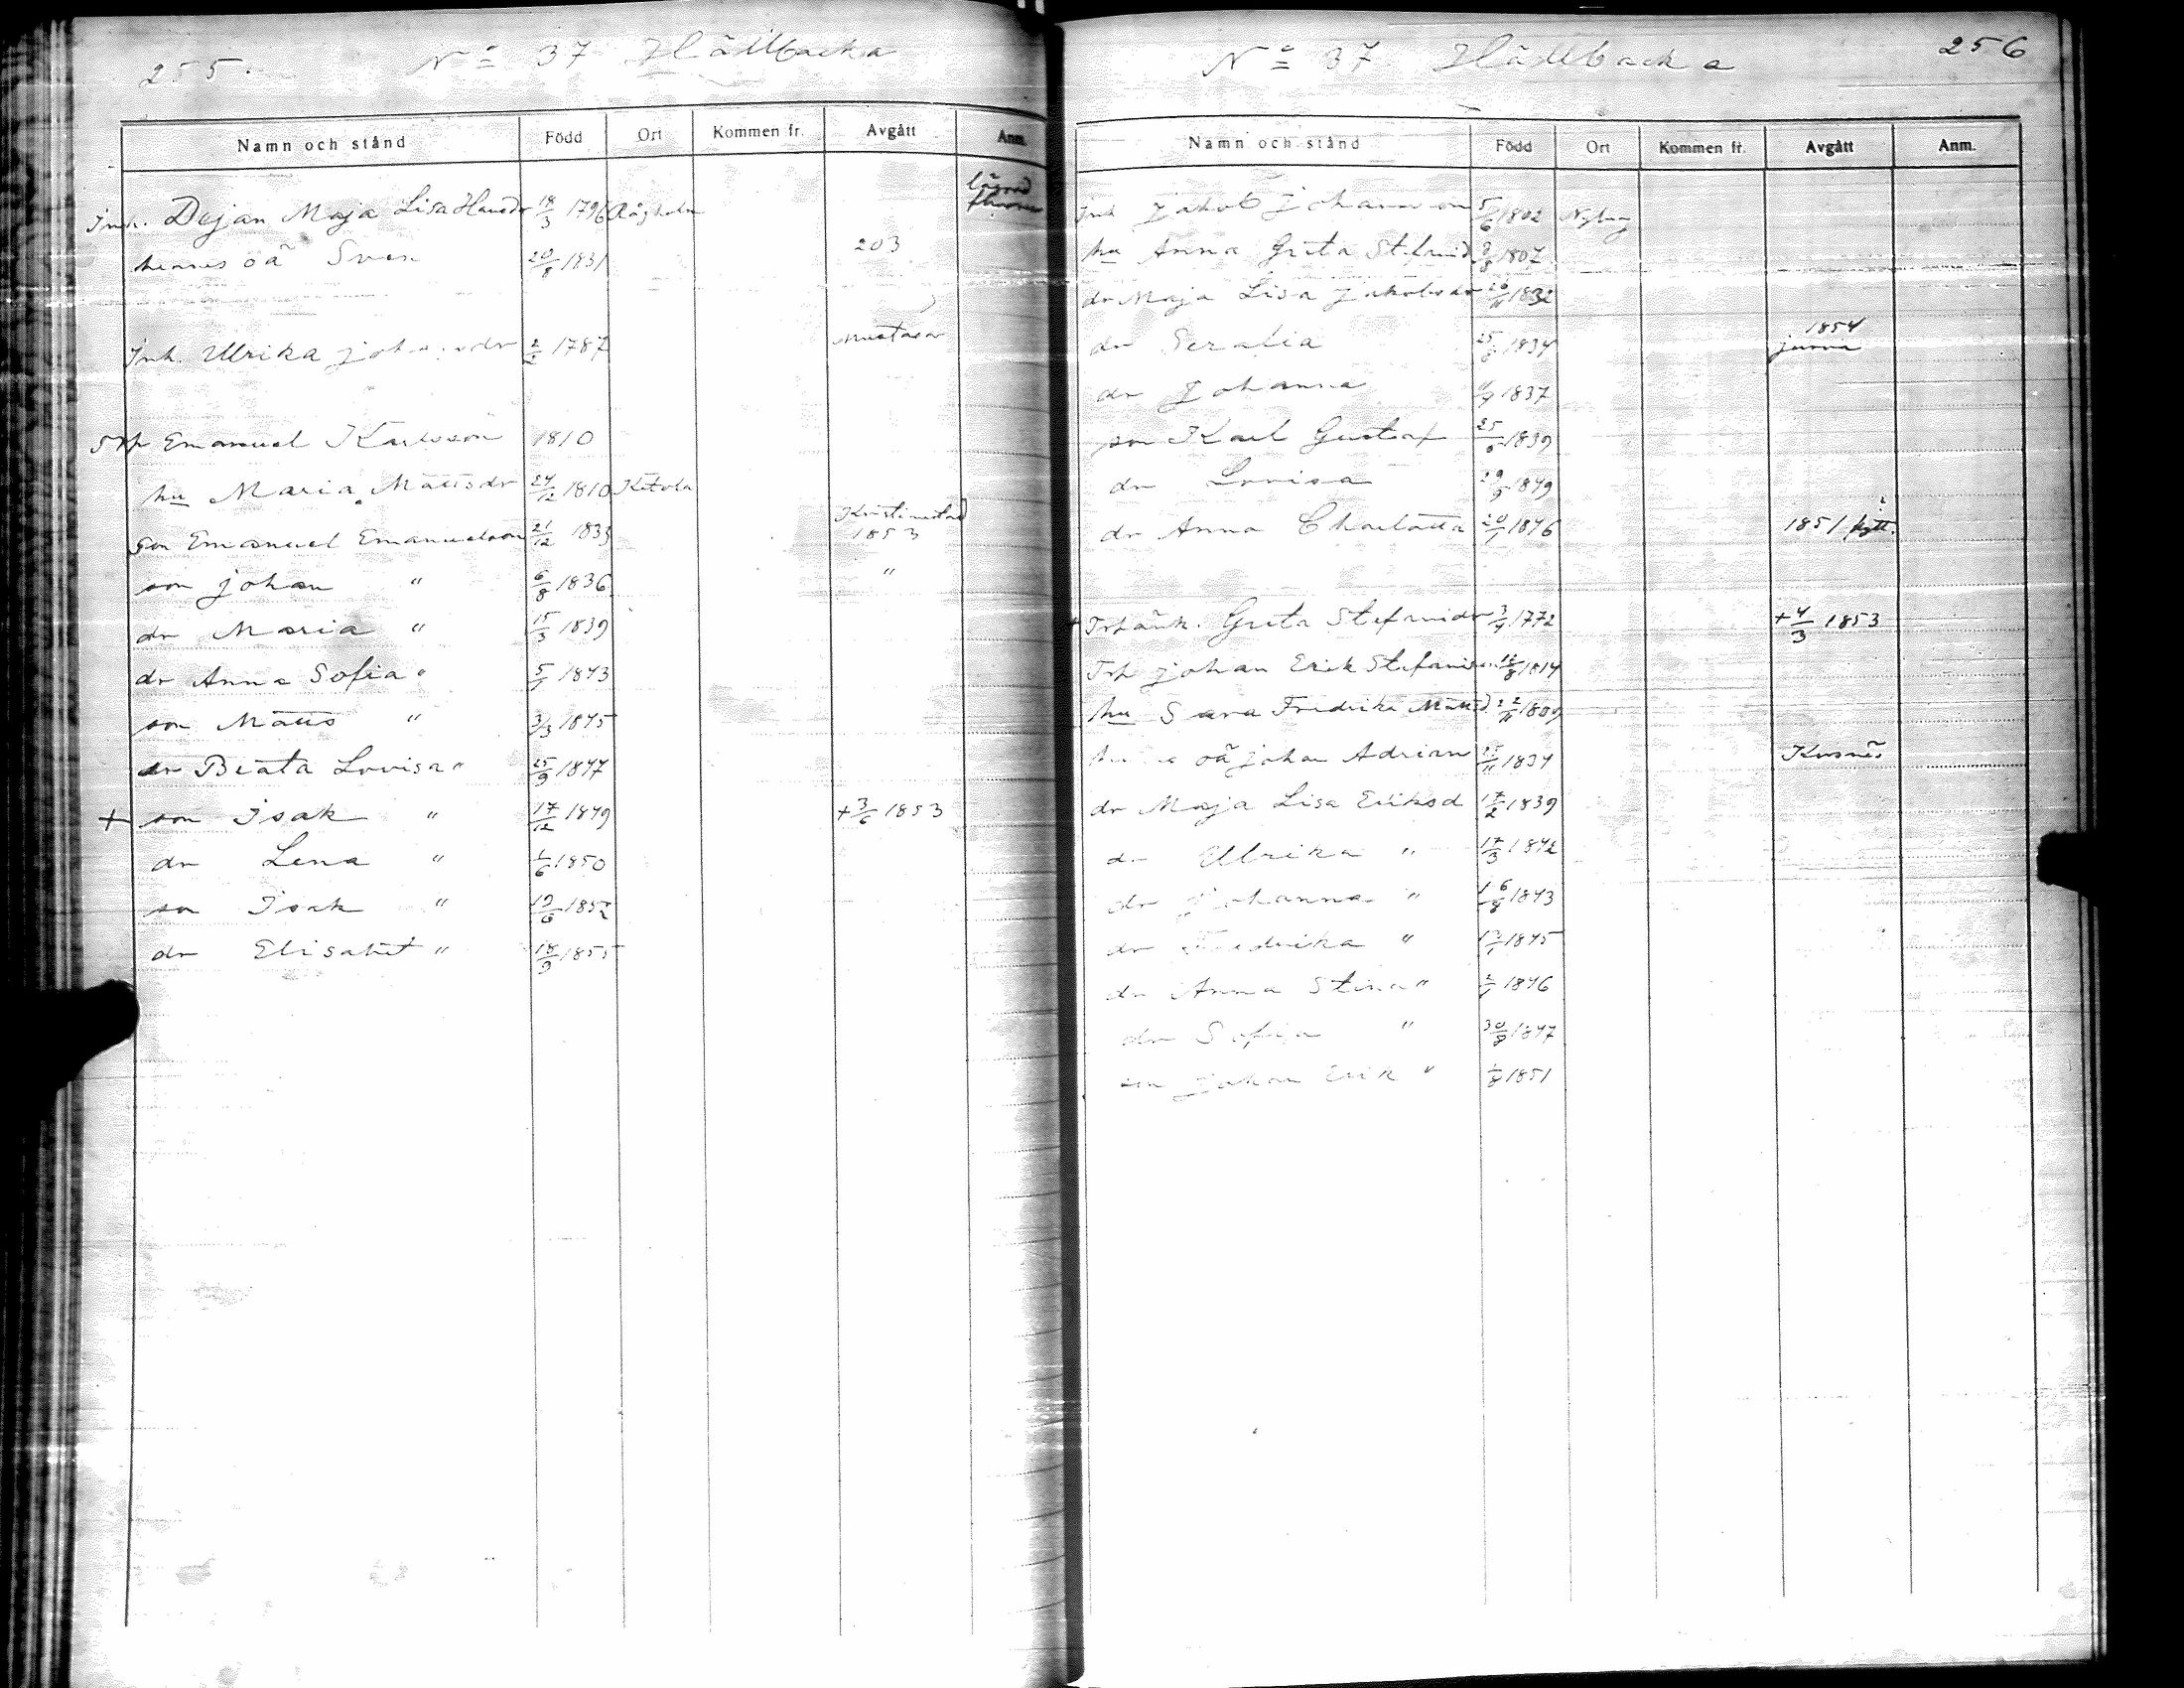 255.
No 37 Hällbacka
Namn och stånd Född Ort Kommen fr. Avgått Anm.
Inh. Dejan Maja Lisa Hansdr 18/3 1796
hennes oä Sven 20/8 1831 203
Inh. Ulrika 1787
Emanuel Karlsson 1810
hu Maria Mattsdr 24/12 1810 Ketola
son Emanuel Emanuelson 21/12 1833 Kristinestad 1853
son Johan " 6/8 1836 "
dr Maria " 15/3 1839
dr Anna Sofia " 1843
son Matts " 3/3 1845
dr Beata Lovisa " 25/9 1847
+ son Isak " 17/12 1849 + 3/6 1853
dr Lena " 1/6 1850
son Isak " 19/6 1852
dr Elisabet " 18/9 1855
256
No 37 Hällbacka
Namn och stånd Född Ort Kommen fr. Avgått Anm.
Inh Jakob Johansson 5/6 1802
hu Anna Greta 1807
dr Maja Lisa Jakobsdr 1832
dr Seralia 1834 1854
dr Johanna 1837
son Karl Gustaf 1839
dr Lovisa 1849
dr Anna Charlotta 1846 1851
Greta Stefansdr 1772 + 4/3 1853
Johan Erik 1814
hu Sara Fredrika 1809
oä Johan Adrian 1834
dr Maja Lisa Eriksd 17/2 1839
dr Ulrika " 17/3 1842
dr Johanna " 16/8 1843
dr Fredrika " 1845
dr Anna Stina " 1846
dr Sofia " 1847
son Johan Erik " 1851